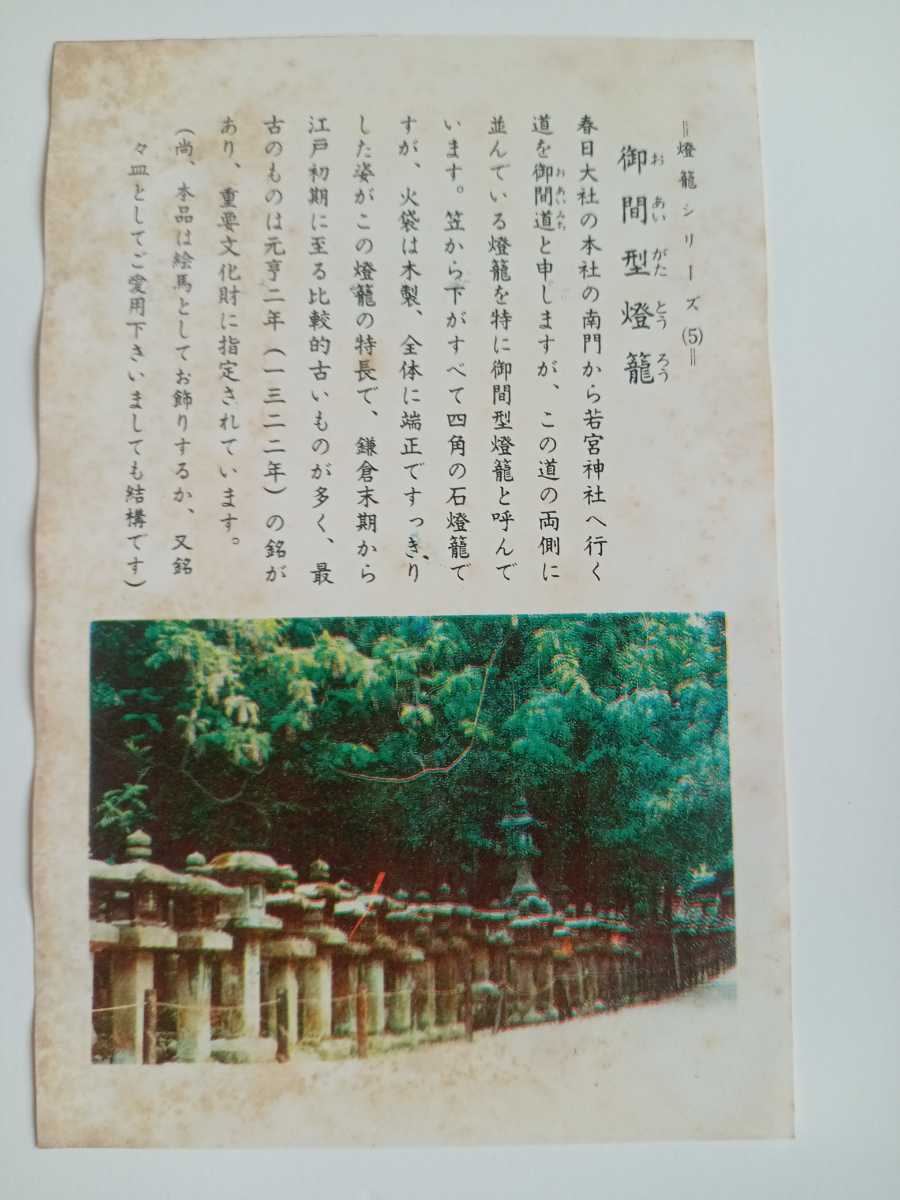 =燈籠シリーズ(5)=
御間型燈籠
おあいがたとうろう
春日大社の本社の南門から若宮神社へ行く
道を御間道と申しますが、この道の両側に
おあいみち
並んでいる燈籠を特に御間型燈籠と呼んで
います。笠から下がすべて四角の石燈籠で
すが、火袋は木製、全体に端正ですっきり
した姿がこの燈籠の特長で、鎌倉末期から
江戸初期に至る比較的古いものが多く、最
古のものは元亨二年(一三二二年)の銘が
あり、重要文化財に指定されています。
(尚、本品は絵馬としてお飾りするか、又銘
々皿としてご愛用下さいましても結構です)